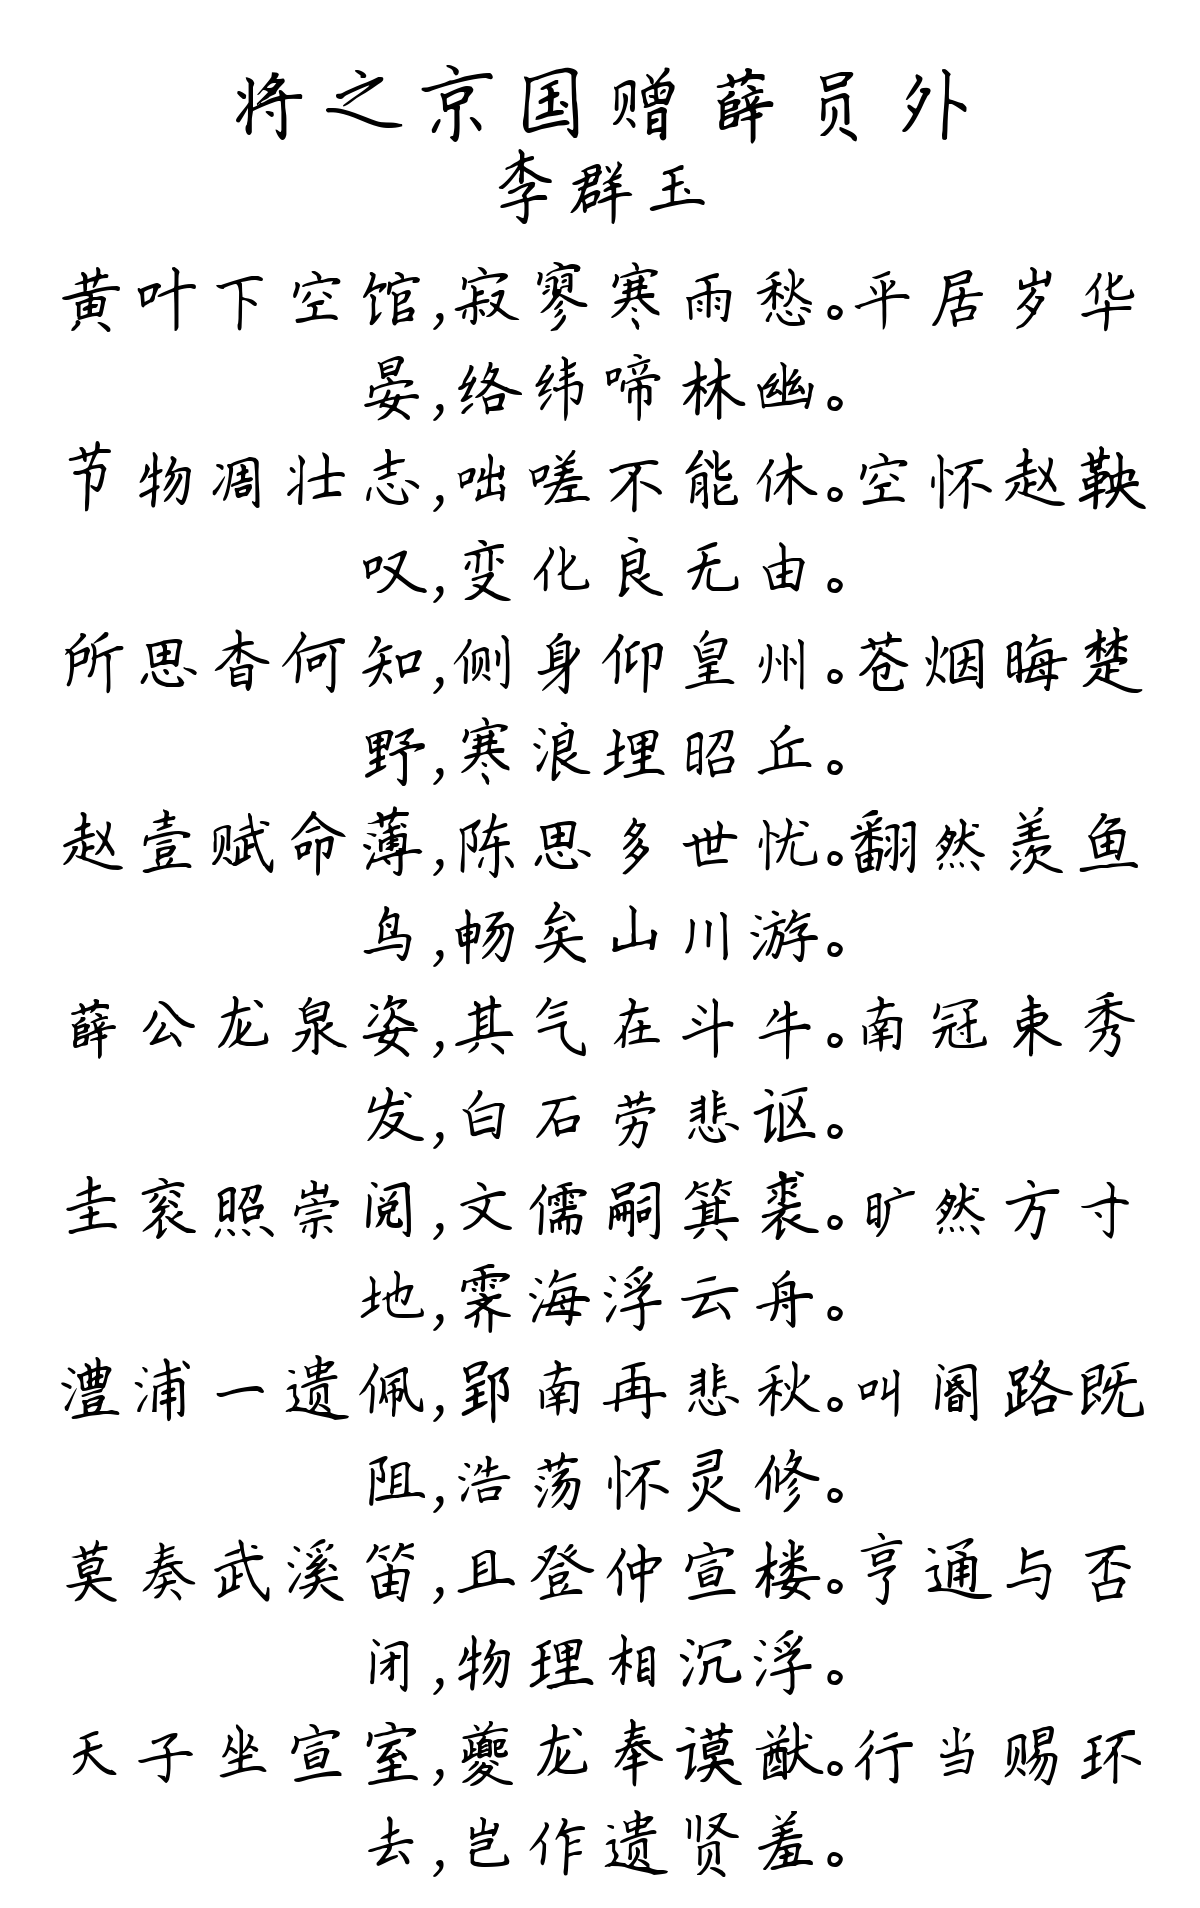 将之京国赠薛员外
李群玉
黄叶下空馆,寂寥寒雨愁。平居岁华
晏,络纬啼林幽。
节物凋壮志,咄嗟不能休。空怀赵鞅
叹,变化良无由。
所思杳何知,侧身仰皇州。苍烟晦楚
野,寒浪埋昭丘。
赵壹赋命薄,陈思多世忧。翻然羡鱼
鸟,畅矣山川游。
薛公龙泉姿,其气在斗牛。南冠束秀
发,白石劳悲讴。
圭衮照崇阅,文儒嗣箕裘。旷然方寸
地,霁海浮云舟。
澧浦一遗佩,郢南再悲秋。叫阍路既
阻,浩荡怀灵修。
莫奏武溪笛,且登仲宣楼。亨通与否
闭,物理相沉浮。
天子坐宣室,夔龙奉谟猷。行当赐环
去,岂作遗贤羞。